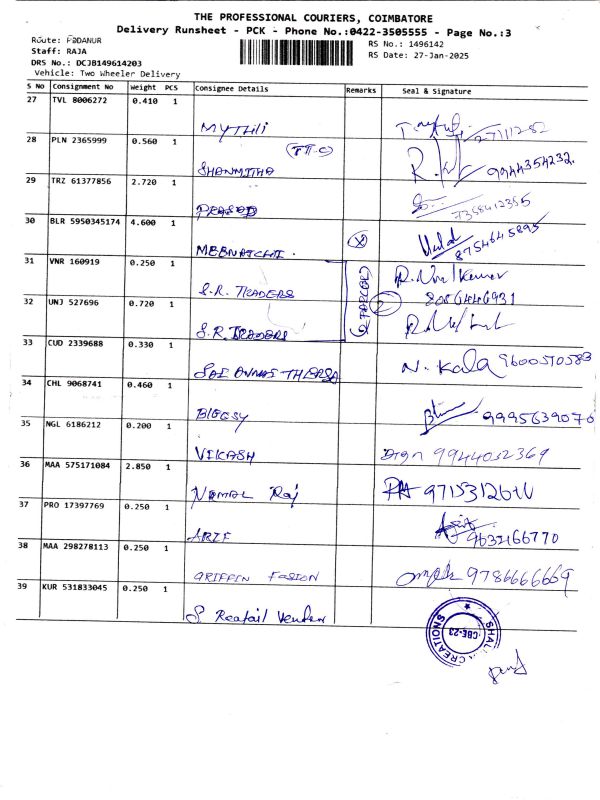 THE PROFESSIONAL COURIERS, COIMBATORE
Delivery Runsheet - PCK - Phone No.:0422-3505555 - Page No.:3
Route: PODANUR
Staff: RAJA
DRS No.: DCJB149614203
Vehicle: Two Wheeler Delivery
RS No.: 1496142
RS Date: 27-Jan-2025
S No Consignment No Weight PCS Consignee Details Remarks Seal & Signature
27 TVL 8006272 0.410 1
MYTHILI
28 PLN 2365999 0.560 1
SHANMITHA 9944354232
29 TRZ 61377856 2.720 1
PRASAD 7358412355
30 BLR 5950345174 4.600 1
MEENATCHI. 8754645895
31 VNR 160919 0.250 1
S.R. TRADERS
32 UNJ 527696 0.720 1
S.R. TRADERS
33 CUD 2339688 0.330 1
N. Kala 9600510583
34 CHL 9068741 0.460 1
BIGGSY 9995639070
35 NGL 6186212 0.200 1
VIKASH 9944032369
36 MAA 575171084 2.850 1
Raj
37 PRO 17397769 0.250 1
ARIF
38 MAA 298278113 0.250 1
GRIFFIN FASION 9786666669
39 KUR 531833045 0.250 1
S
CREATIONS
CBE-23